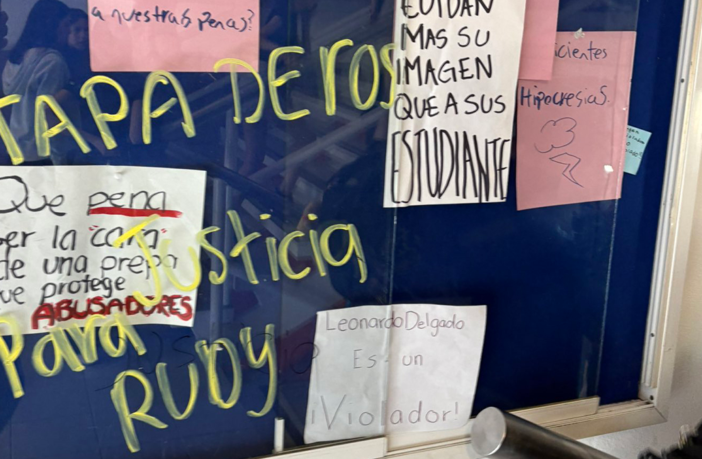 a nuestras penas?
TAPADEROS
CUIDAN
MAS SU
IMAGEN
QUE A SUS
ESTUDIANTE
cientes
Hipocresias.
Que pena
er la "cara"
de una prepa
ue protege
ABUSADORES
Justicia
Para
RUDY
Leonardo Delgado
Es un
¡Violador!